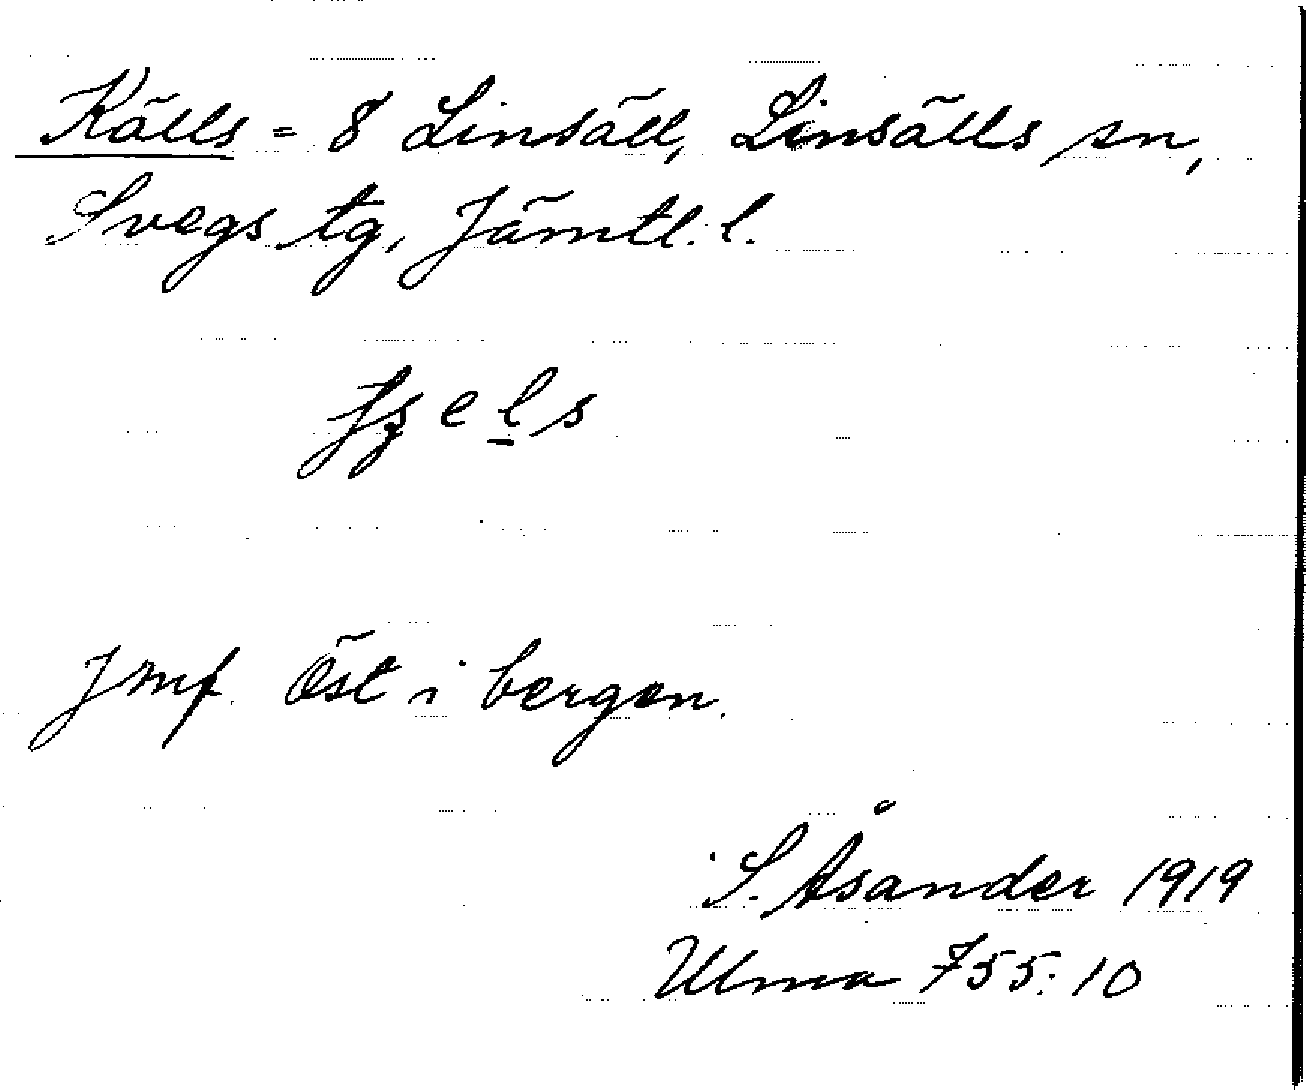 Källs = 8 Linsäll, Linsälls sn,
Svegs tg, Jämtl. l.
els
Jmf. Öst i bergen.
S. Åsander 1919
Ulma 755:10